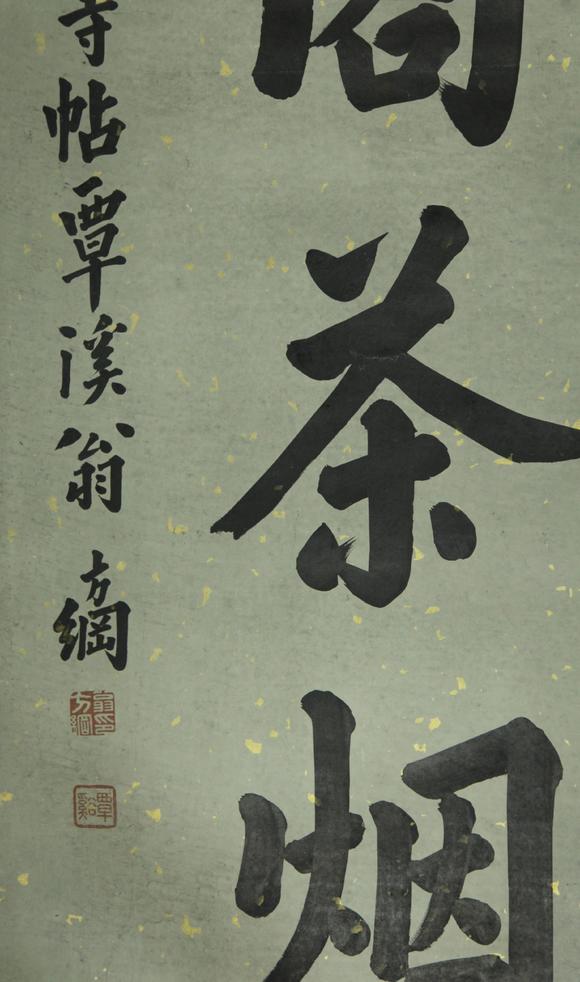 茶烟
寺帖覃溪翁方綱
翁方綱印
覃谿